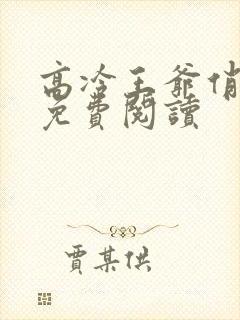 高冷王爺俏
免費閱讀
賈某供